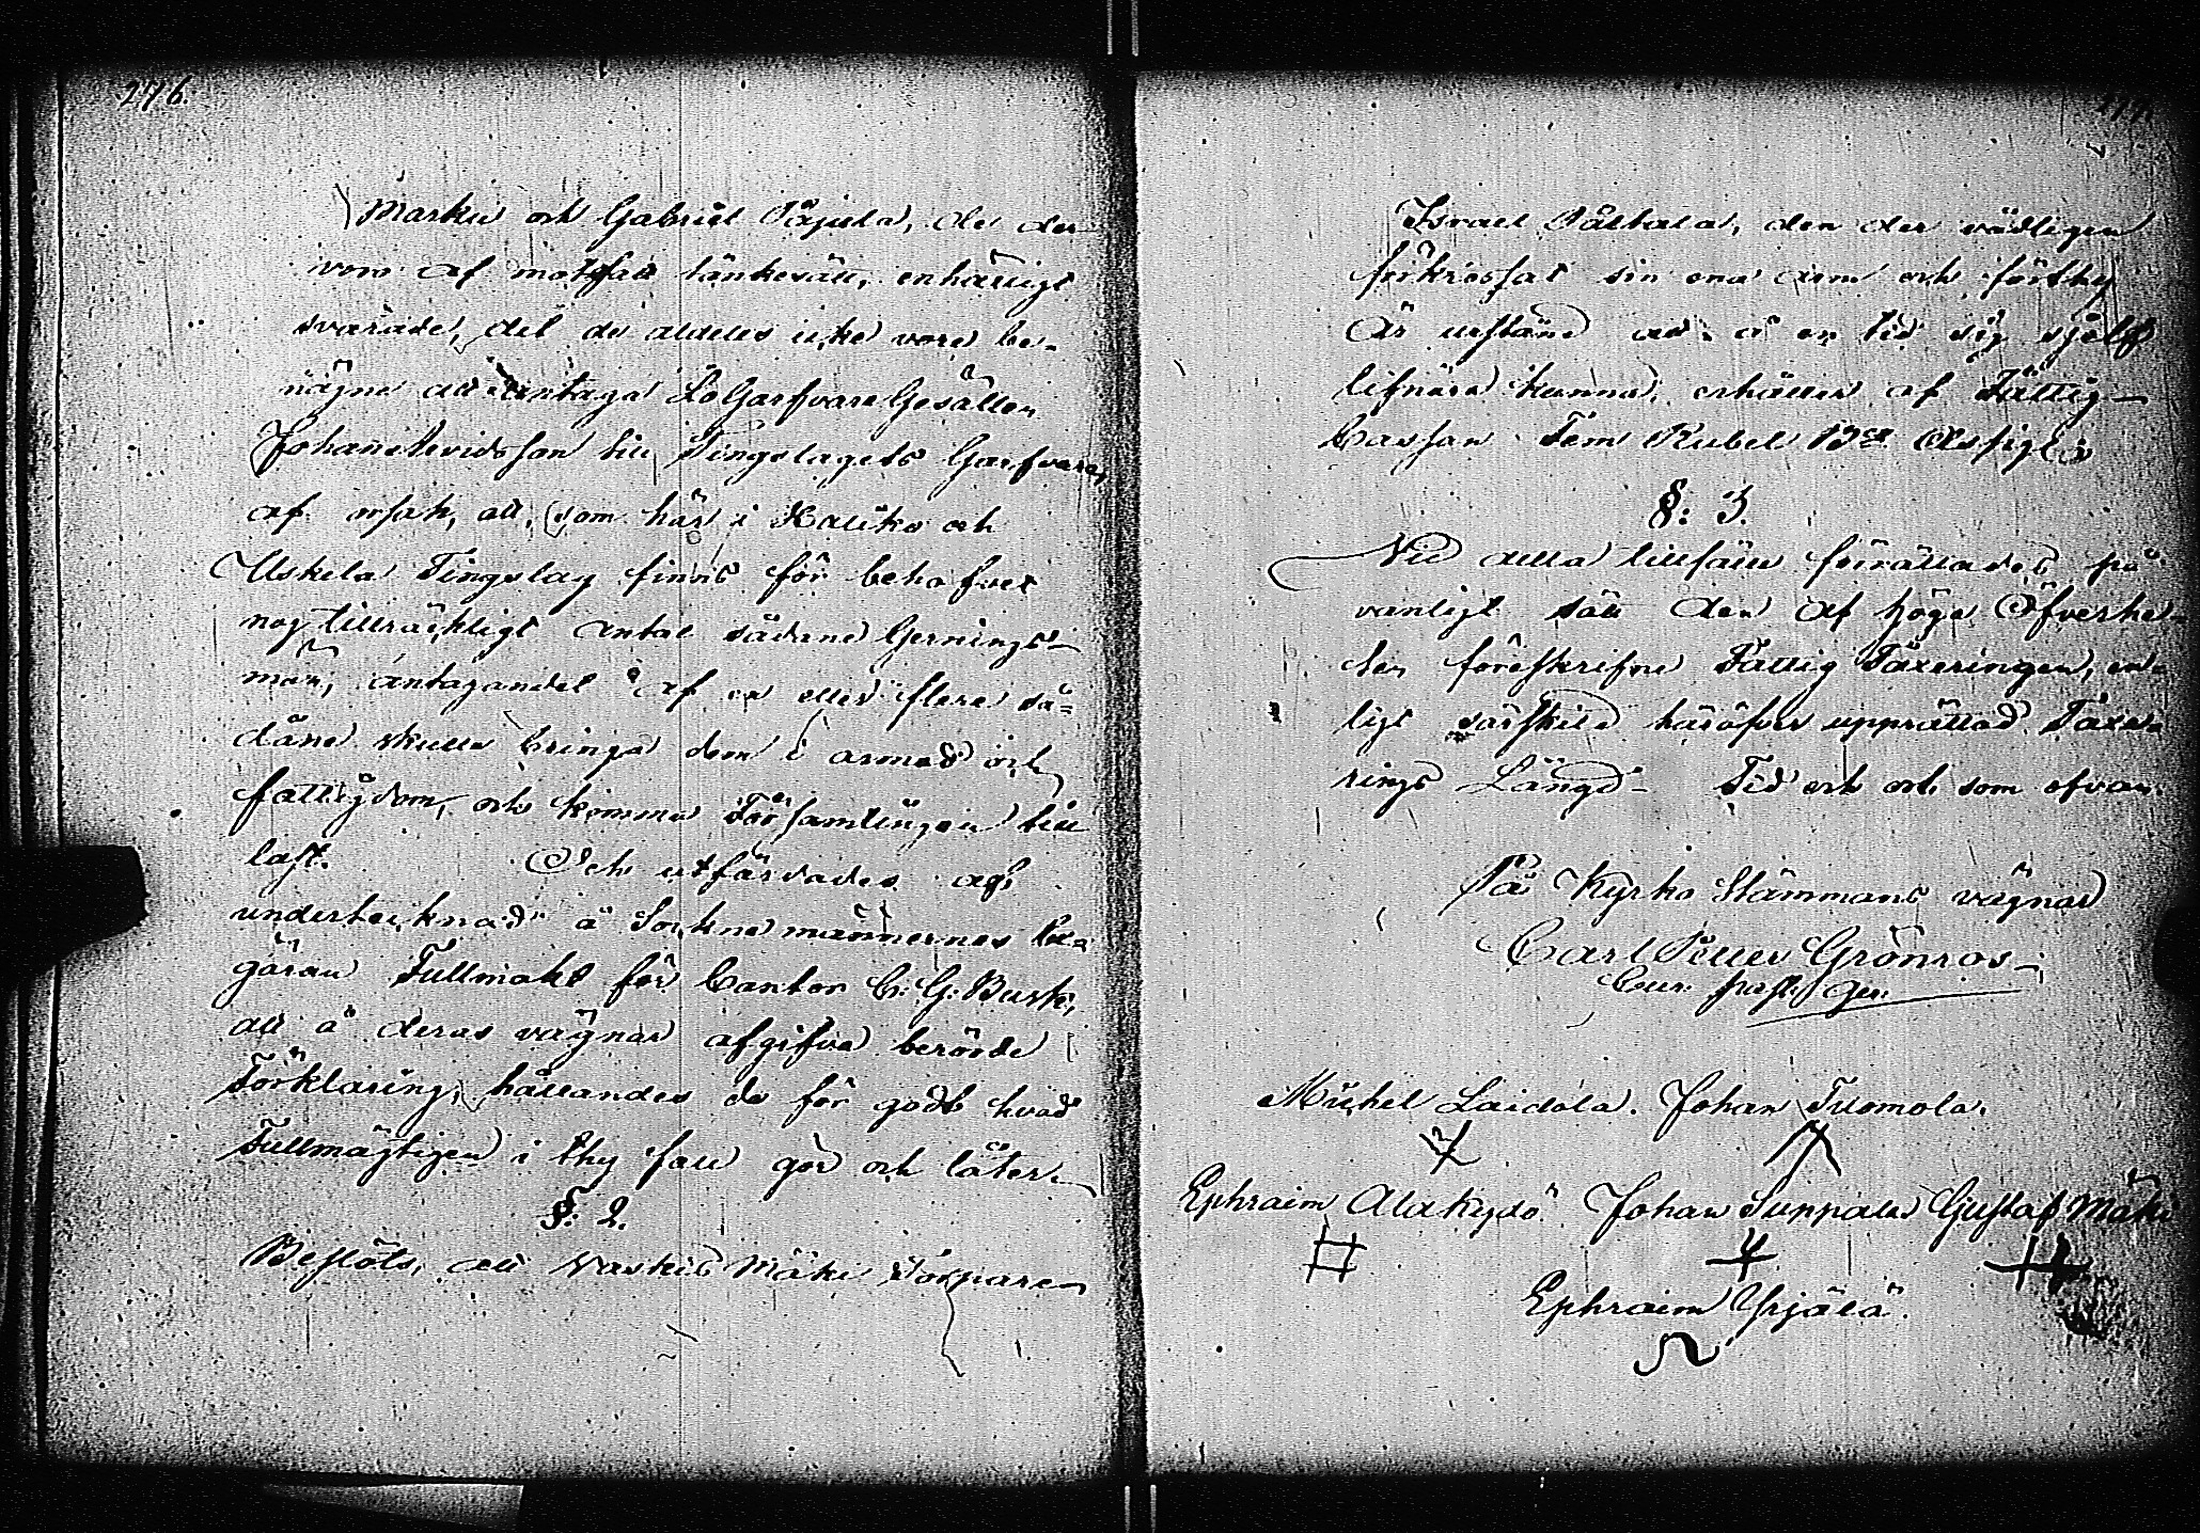 276.
Marku och Gabriel Pajula, de der
voro af motsatt tänkesätt, enhälligt
svarade, det de aldeles icke vore be-
nägne att antaga LoGarfvare Gesällen
Johan Levidsson till Tingslagets Garfvare,
af orsak, att, som här i Haliko och
Uskela Tingslag finnes för behofvet
nog tillräckligt antal sådane Gernings-
män, antagandet af en eller flere så-
dane skulle bringa dem i armod och
fattigdom, och komma Församlingen till
last. Och utfärdades af
undertecknad å Sockne männernes be-
gäran Fullmakt för Cantor C. G. Busk,
att å deras vägnar afgifva berörde
Förklaring, hållandes de för godt hvad
Fullmägtigen i thy fall gör och låter.
§: 2.
Beslöts, att Vaskis Mäki Torpare
277.
Israel Påltala, den der vådligen
förkrossat sin ena arm och förthy
är urstånd att å en tid sig sjelf
lifnära kunna, erhåller af Fattig-
Cassan Fem Rubel Bco Assign:r
§: 3.
Vid detta tillfälle förrättades på
vanligt sätt den af höga Öfverhe-
ten föreskrifne Fattig Taxeringen, en-
ligt särskild häröfver upprättad Taxe-
rings Längd. Tid och ort som ofvan.
På Kyrko Stämmans vägnar
Carl Petter Grönros
Cur. past. ger.
Michel Laidola. Johan Tuomola.
Ephraim Alakydö. Johan Suppala Gustaf Mäki
Ephraim Yrjälä.